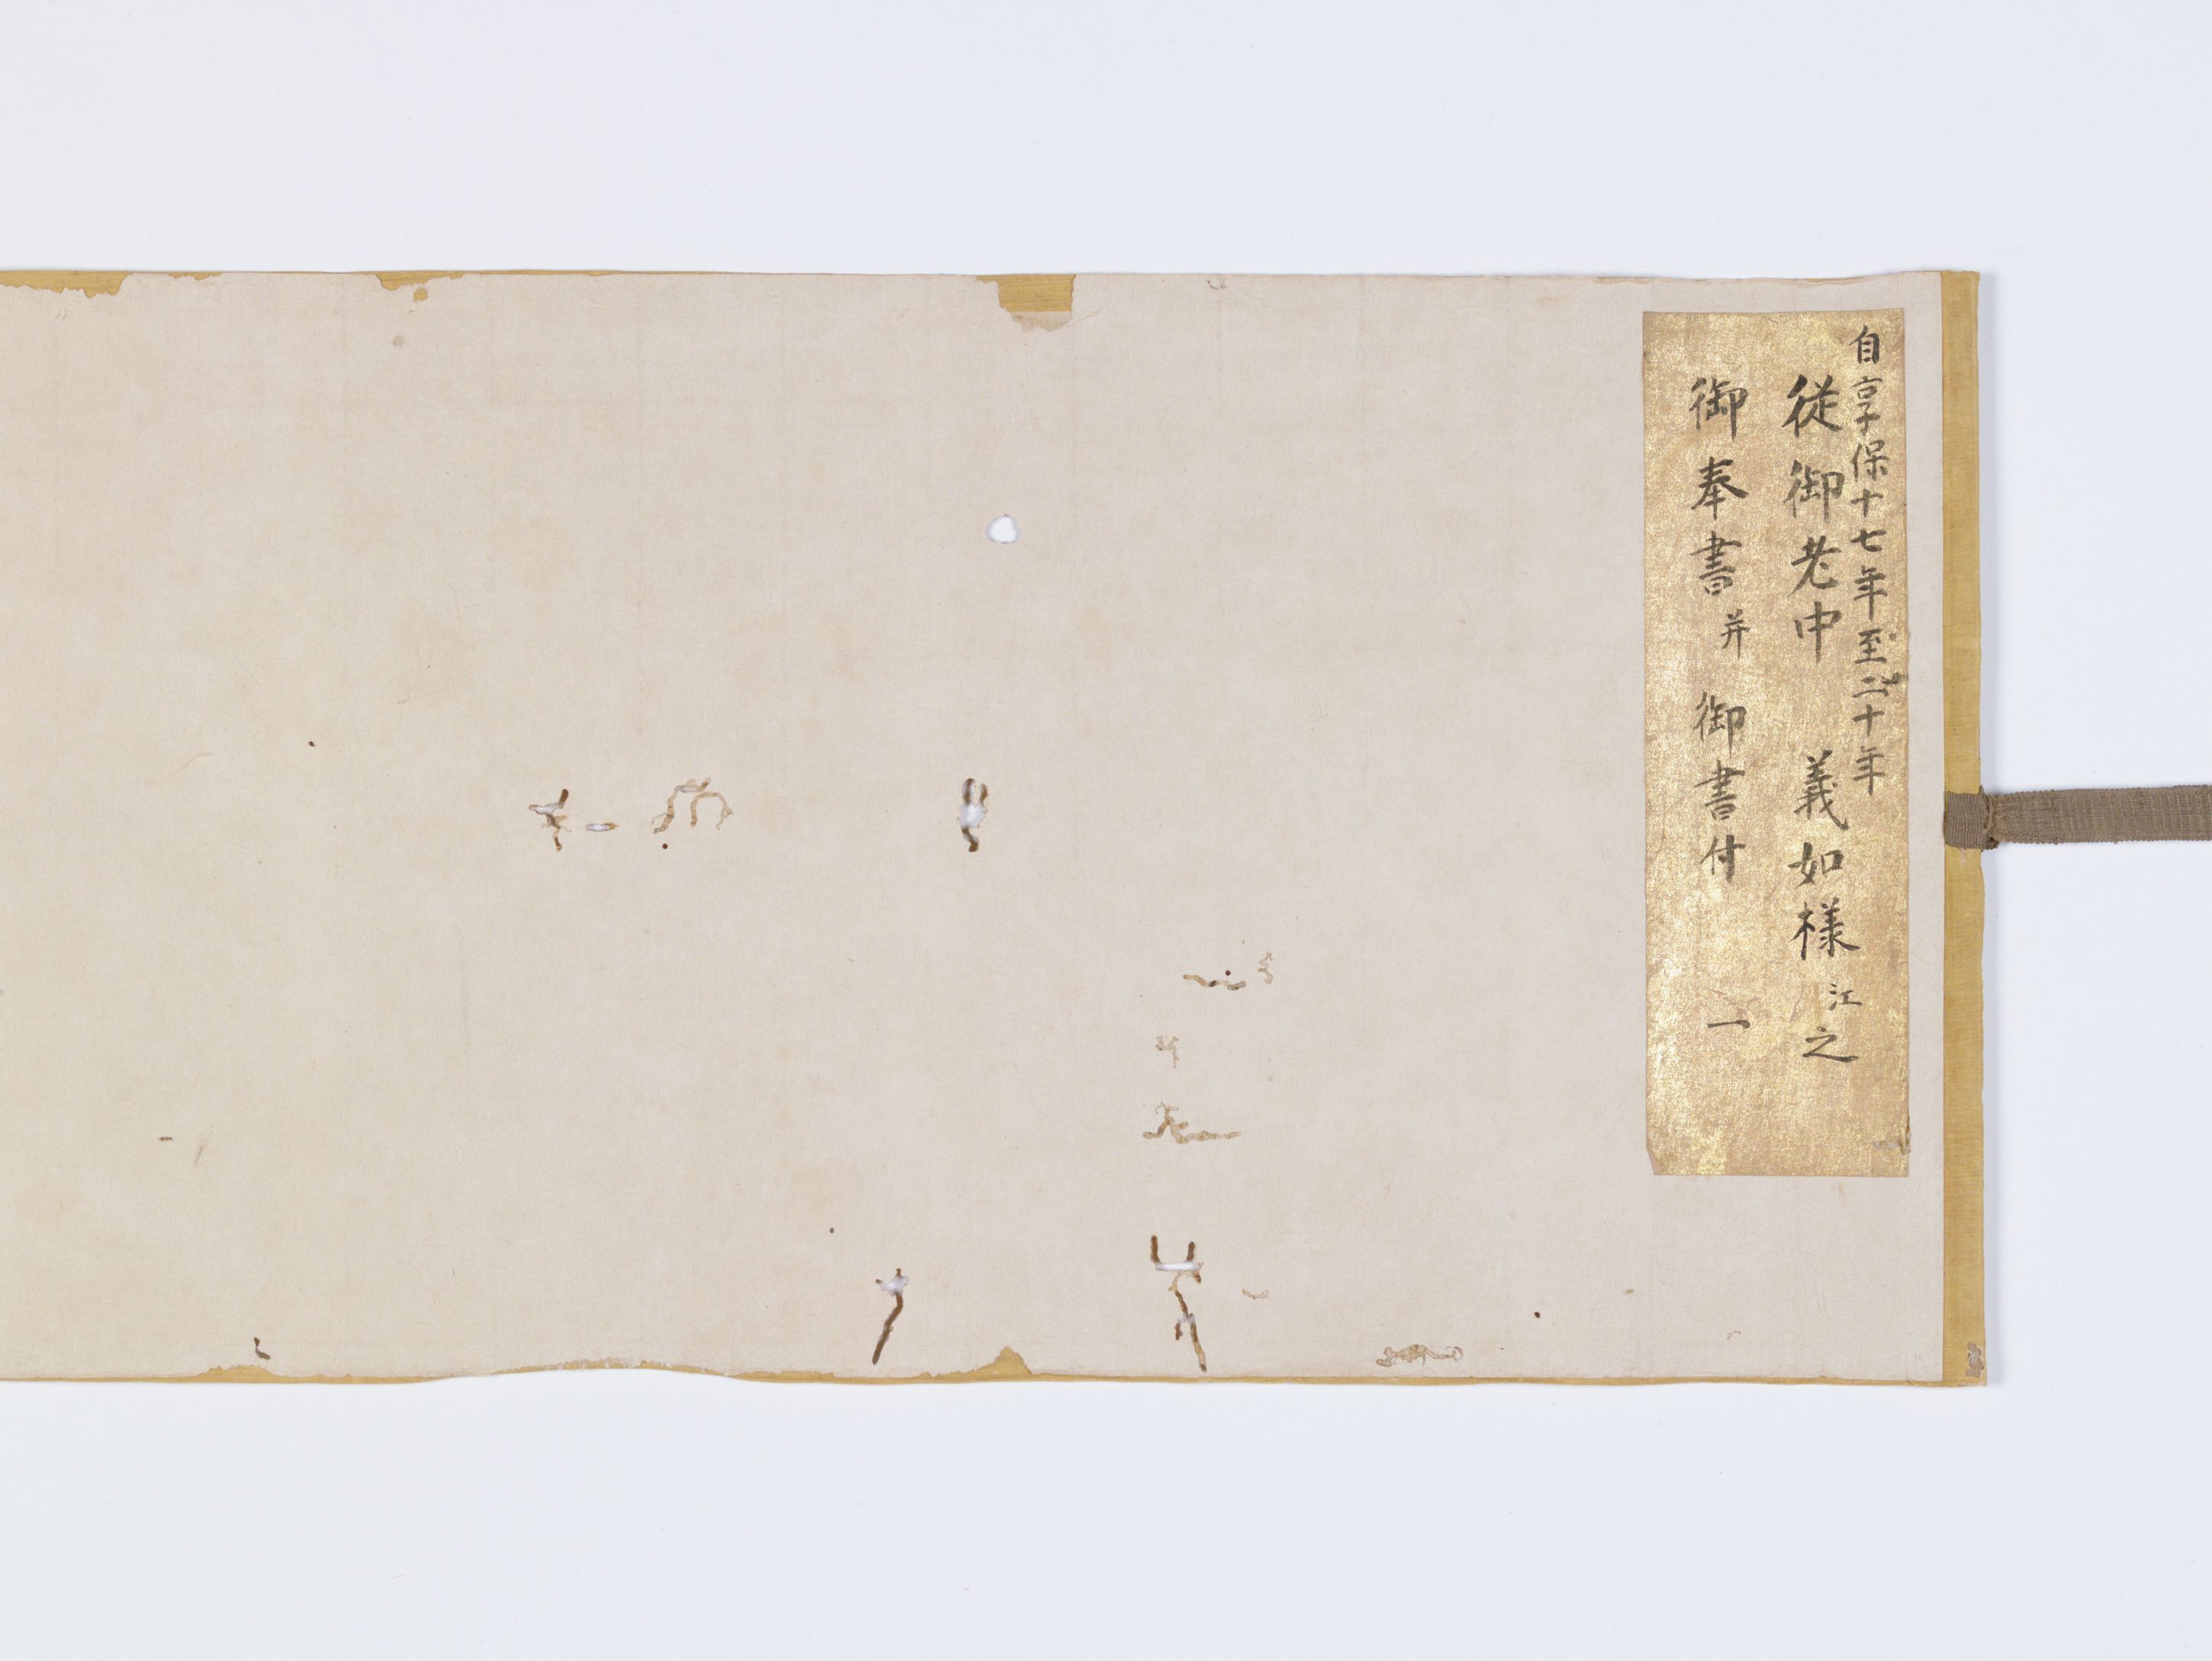 自享保十七年至二十年
従御老中　義如様江之
御奉書并　御書付　一